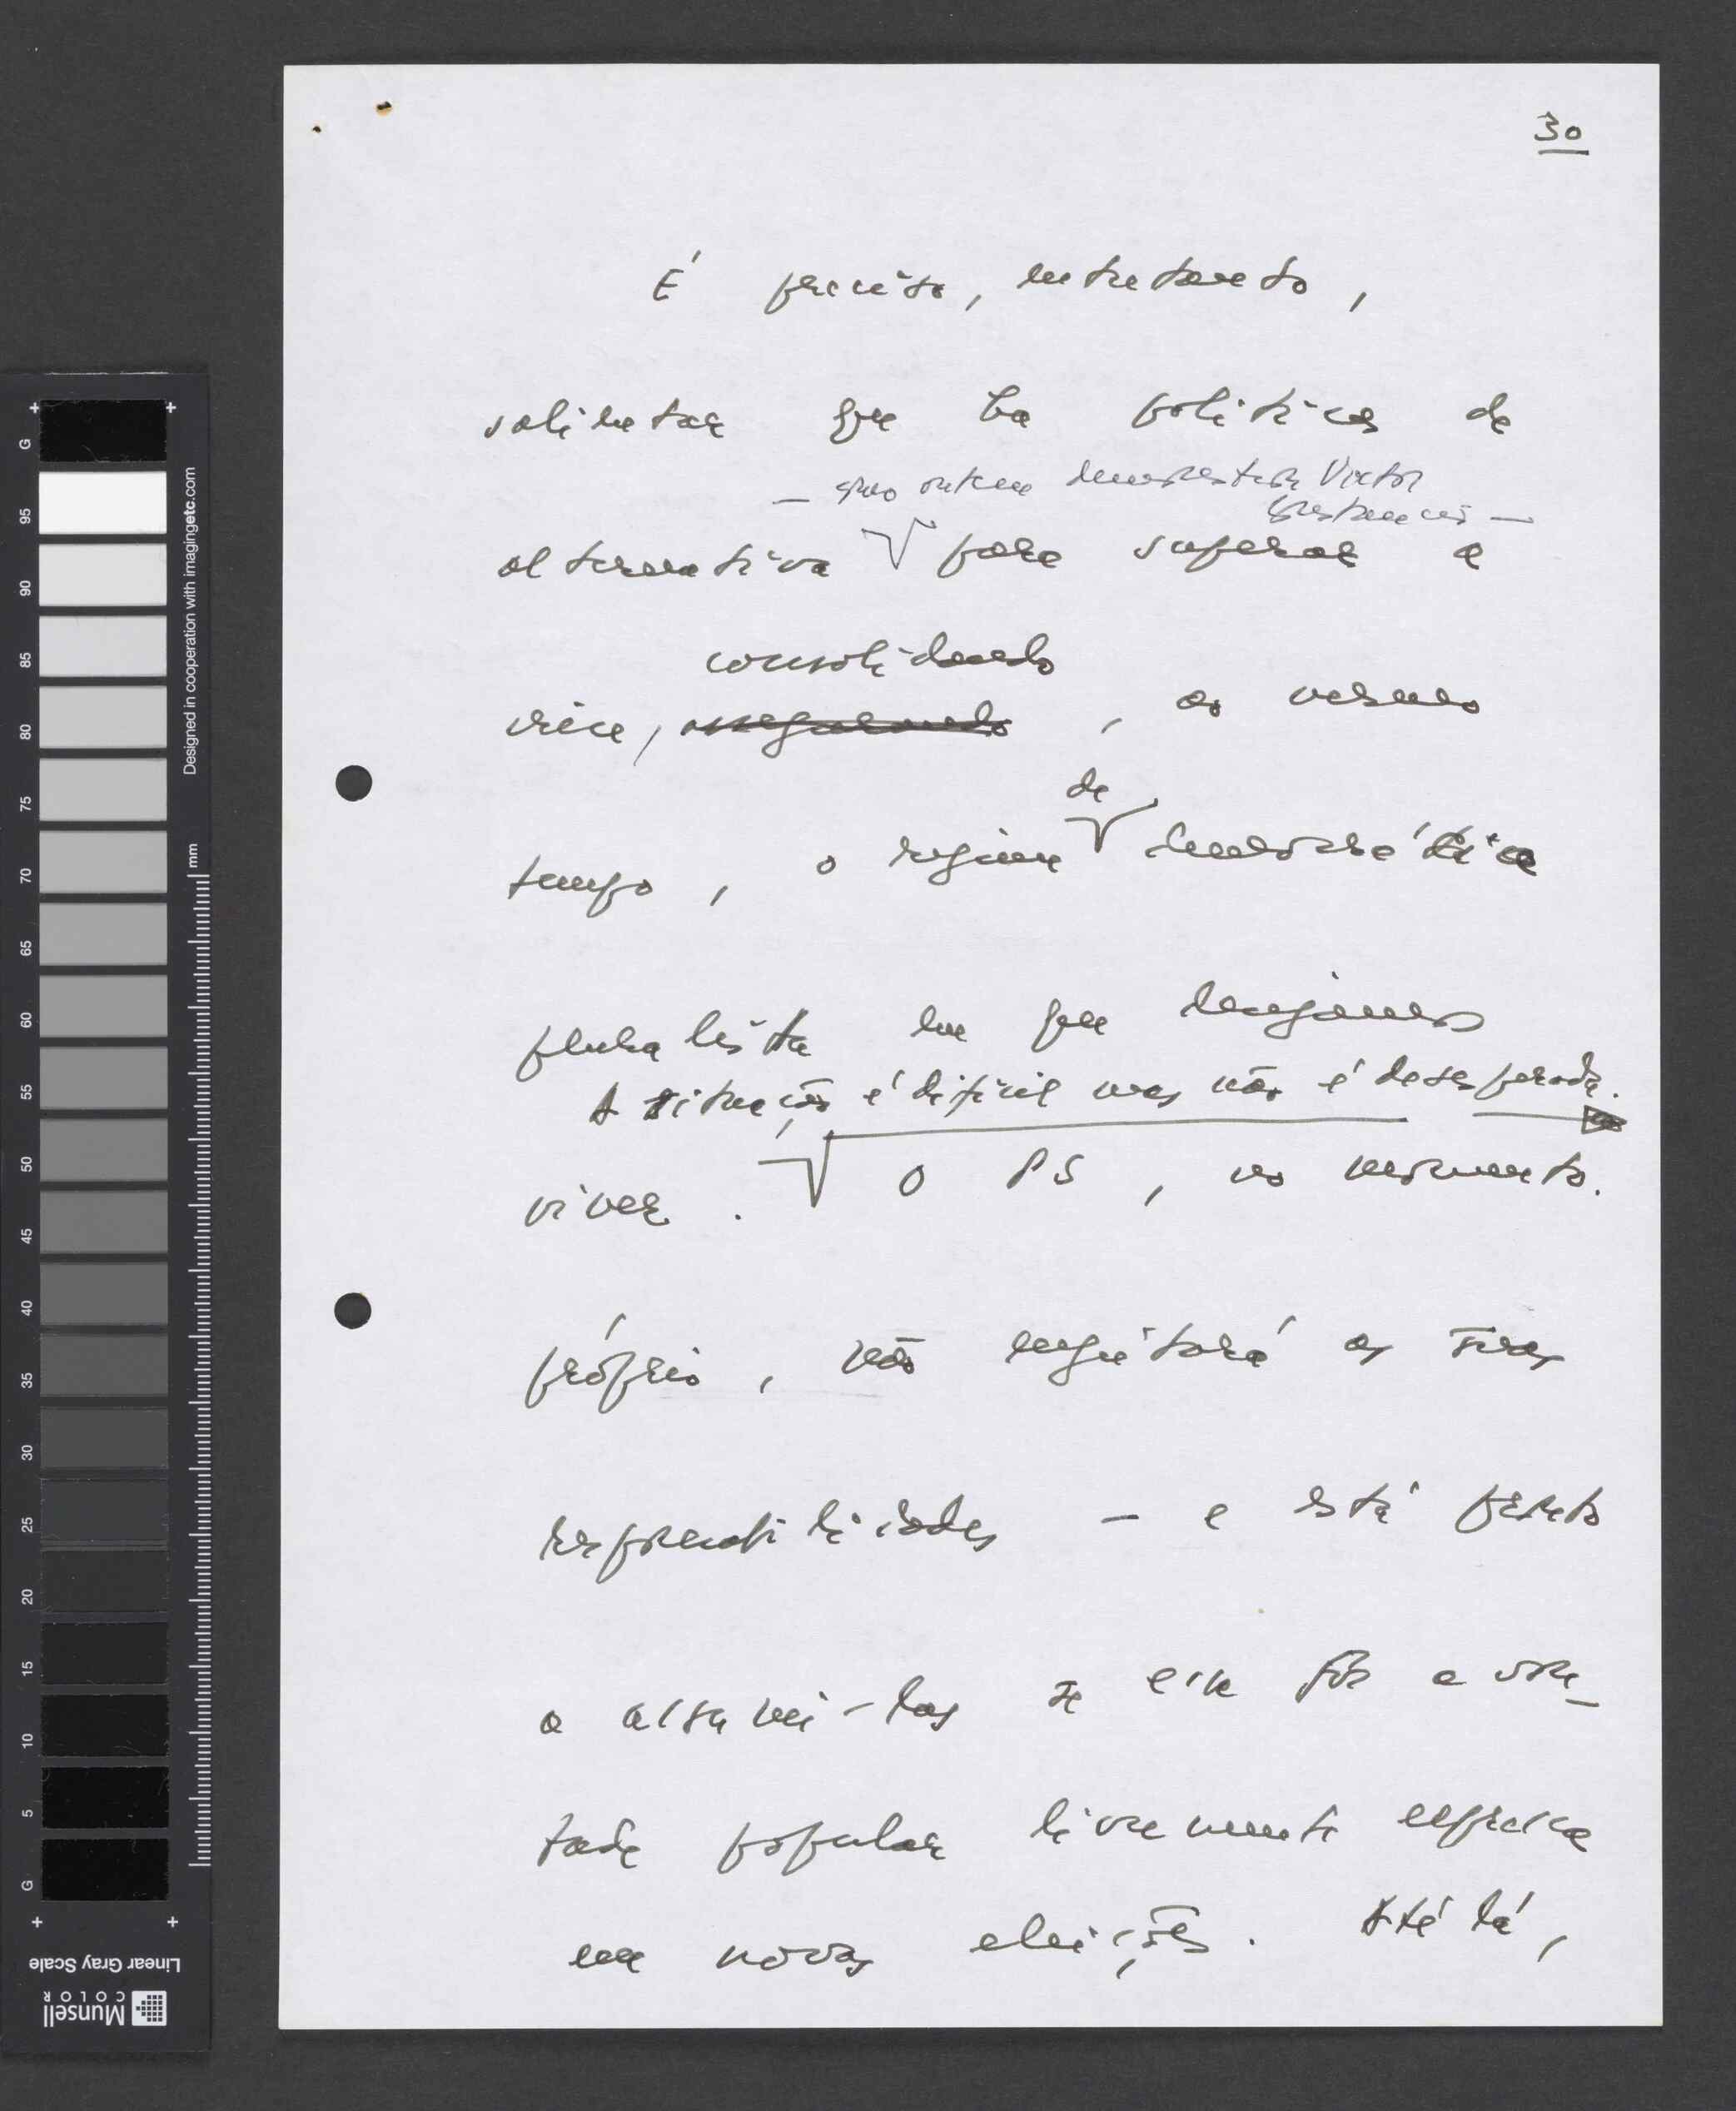 30
É preciso, entretanto,
salientar que há políticas de
— como ontem demonstrou Victor
Constâncio —
alternativa para superar a
crise, assegurando , ao mesmo
consolidando
tempo, o regime democrática
de
pluralista em que desejamos
A situação é difícil mas não é desesperada.
viver. O PS, no momento
próprio, não enjeitará as suas
responsabilidades — e está pronto
a assumi-las se essa fôr a von-
tade popular livremente expressa
em novas eleições. Até lá,
G
95
90
85
80
75
70
65
60
55
50
45
40
35
30
25
20
15
10
5
G
mm
Designed in cooperation with imagingetc.com
Linear Gray Scale
Munsell
COLOR